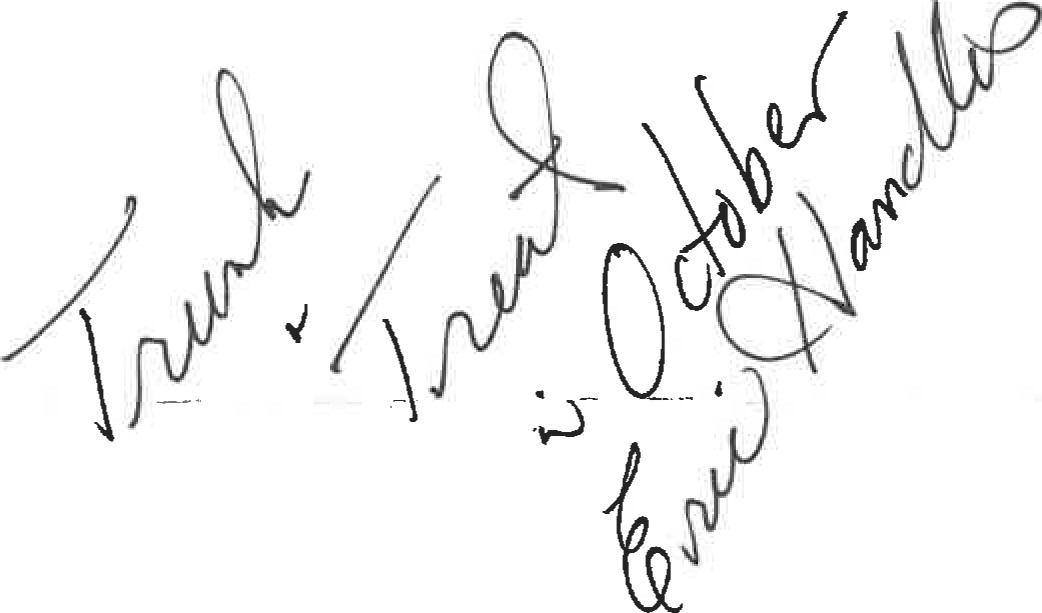 Trunk
r
Treat
in October
Eric Handler